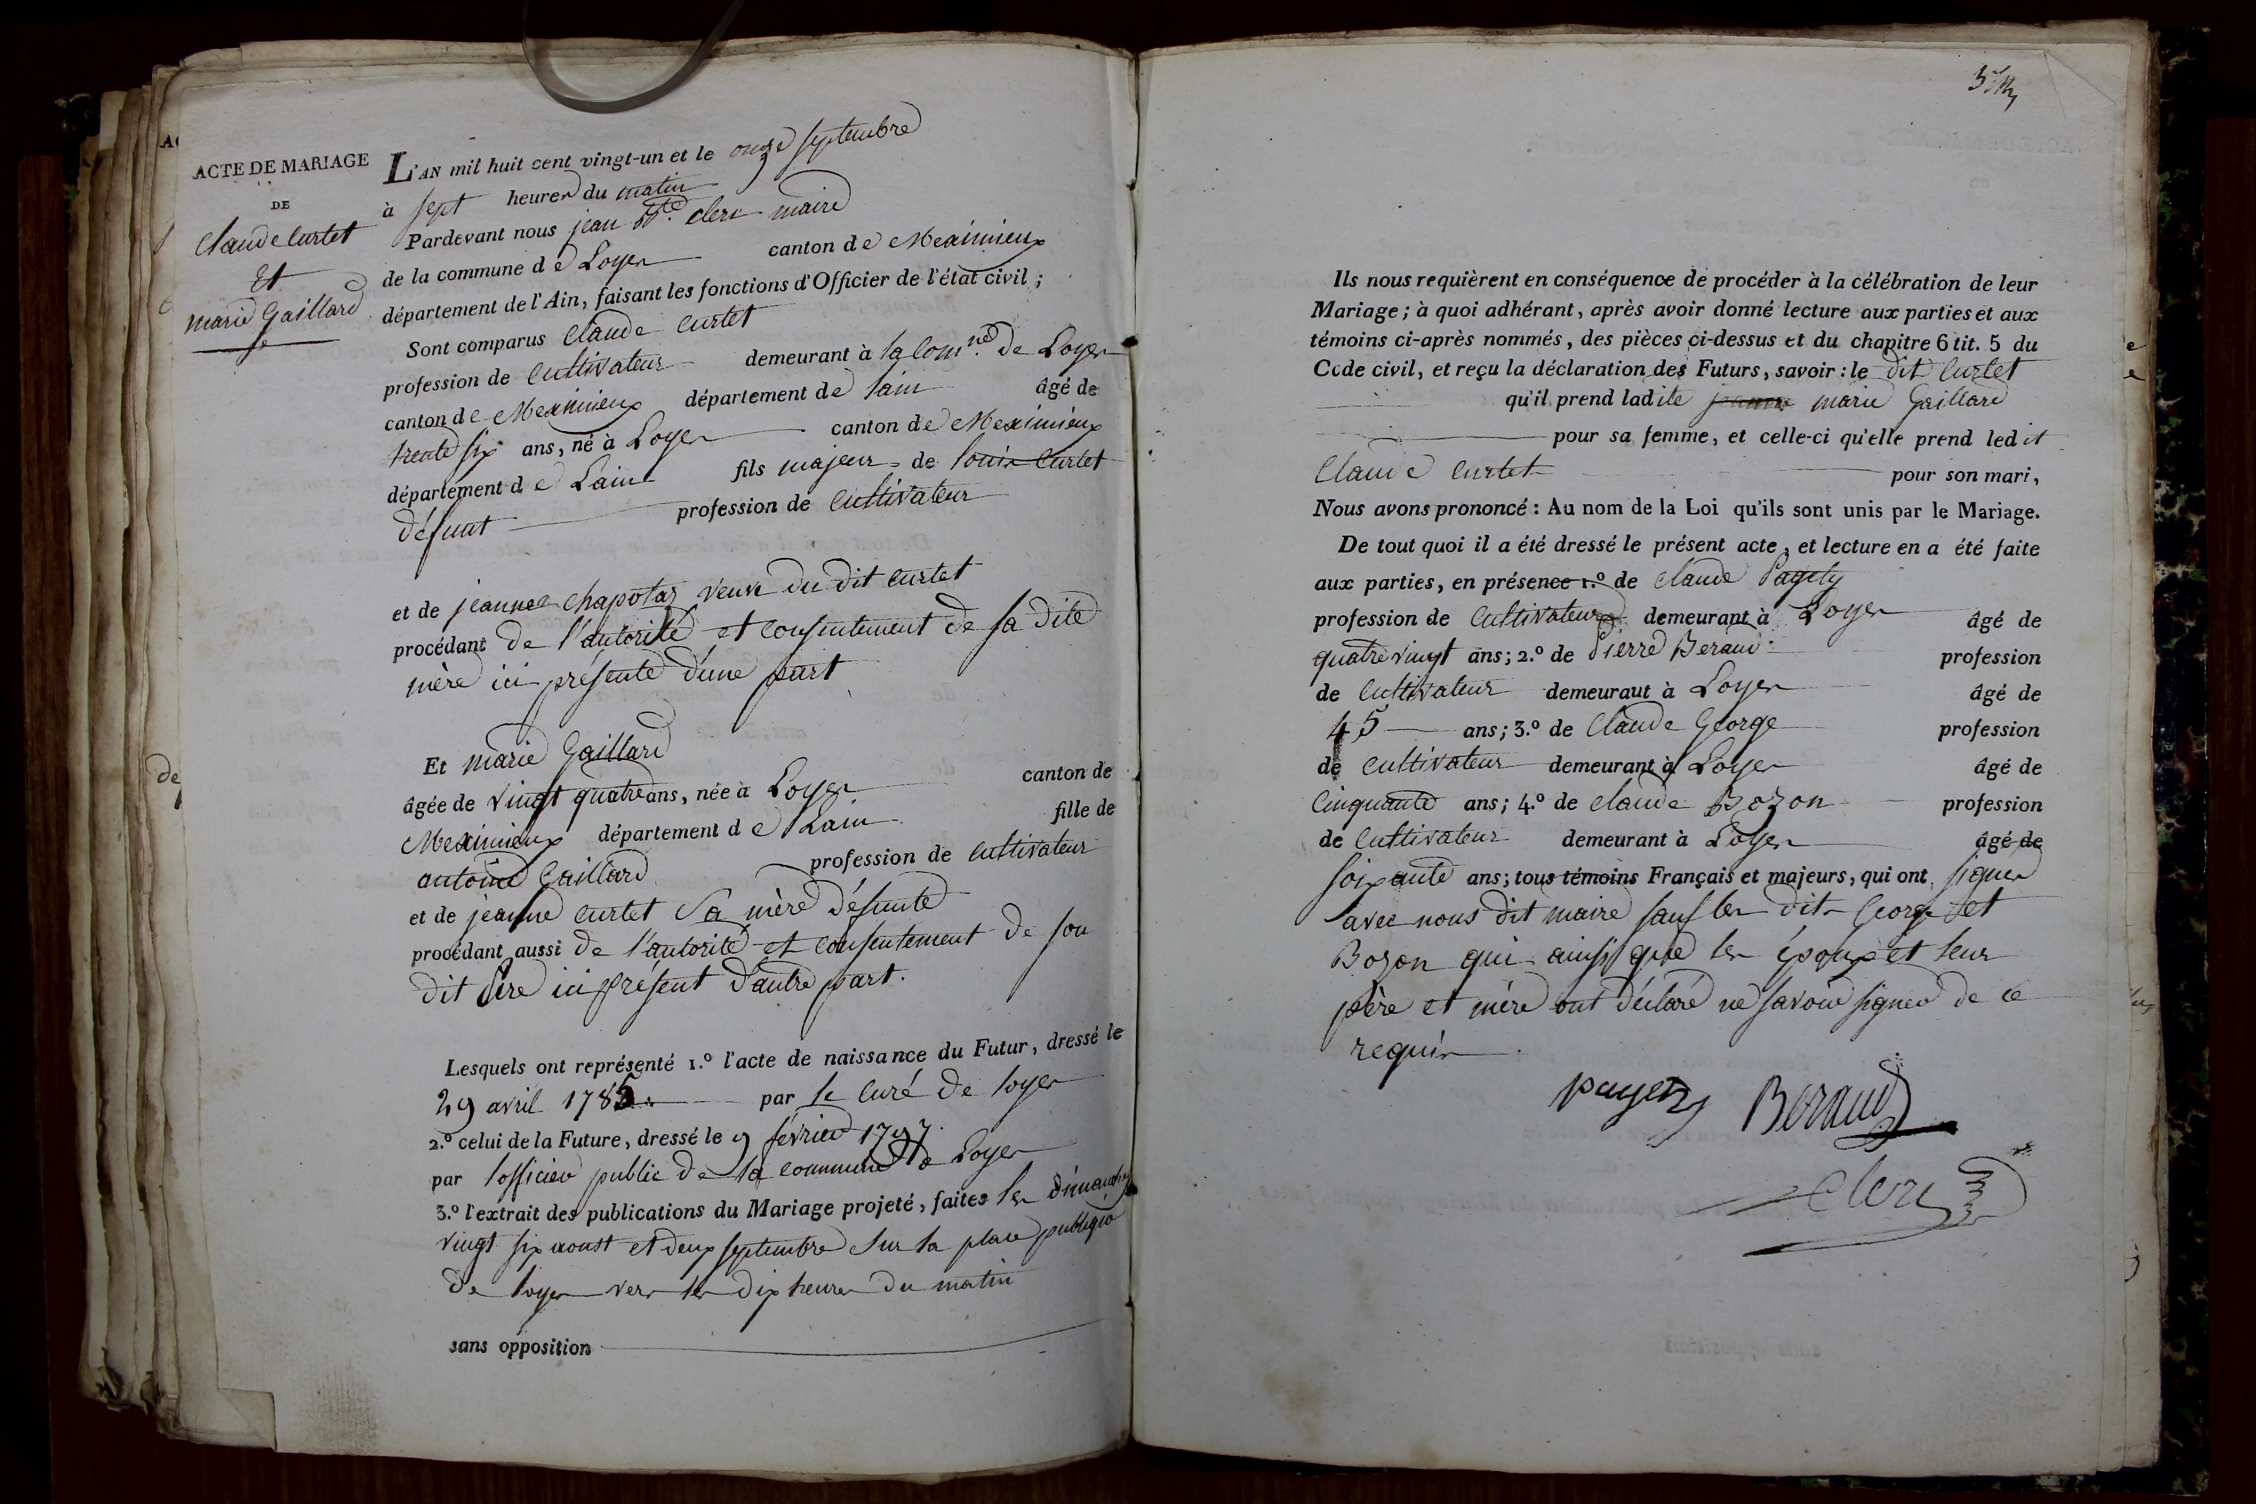 ACTE DE MARIAGE
DE
Claude Curtet
Et
marie Gaillard
L'AN mil huit cent vingt-un et le onze septembre
à sept heures du matin
Pardevant nous jean Bte. clerc maire
de la commune de Loyes canton de Meximieux
département de l'Ain, faisant les fonctions d'Officier de l'état civil ;
Sont comparus Claude Curtet
profession de Cultivateur demeurant à la Comne. de Loyes
canton de Meximieux département de lain âgé de
trente six ans, né à Loyes canton de Meximieux
département de Lain fils majeur de louis Curtet
défunt profession de Cultivateur
et de jeanne chapotaz veuve du dit Curtet
procédant de l'autorité et consentement de sa dite
mère ici présente d'une part
Et marie Gaillard
âgée de vingt quatre ans, née à Loyes canton de
Meximieux département de Lain fille de
antoine Gaillard profession de Cultivateur
et de jeanne curtet Sa mère défunte
procédant aussi de l'autorité et consentement de son
dit Père ici présent d'autre part.
Lesquels ont représenté 1.º l'acte de naissance du Futur, dressé le
29 avril 1785. par le Curé de loyes
2.º celui de la Future, dressé le 9 février 1797.
par l'officier public de la commune de Loyes
3.º l'extrait des publications du Mariage projeté, faites les dimanches
vingt six aoust et deux septembre sur la place publique
de loyes vers les dix heures du matin
sans opposition
Ils nous requièrent en conséquence de procéder à la célébration de leur
Mariage ; à quoi adhérant, après avoir donné lecture aux parties et aux
témoins ci-après nommés, des pièces ci-dessus et du chapitre 6 tit. 5 du
Code civil, et reçu la déclaration des Futurs, savoir : le dit Curtet
qu'il prend ladite jeanne marie Gaillard
pour sa femme, et celle-ci qu'elle prend ledit
Claude Curtet pour son mari,
Nous avons prononcé : Au nom de la Loi qu'ils sont unis par le Mariage.
De tout quoi il a été dressé le présent acte, et lecture en a été faite
aux parties, en présence 1.º de Claude
profession de Cultivateur demeurant à Loyes âgé de
quatre vingt ans ; 2.º de Pierre Beraud profession
de Cultivateur demeuraut à Loyes âgé de
45 ans ; 3.º de Claude George profession
de Cultivateur demeurant à Loyes âgé de
Cinquante ans ; 4.º de Claude Bozon profession
de Cultivateur demeurant à Loyes âgé de
soixante ans ; tous témoins Français et majeurs, qui ont signer
avec nous dit maire sauf les dits George et
Bozon qui ainsi que les époux et leur
père et mère ont déclaré ne savoir signer de ce
requis.
Beraud
clerc